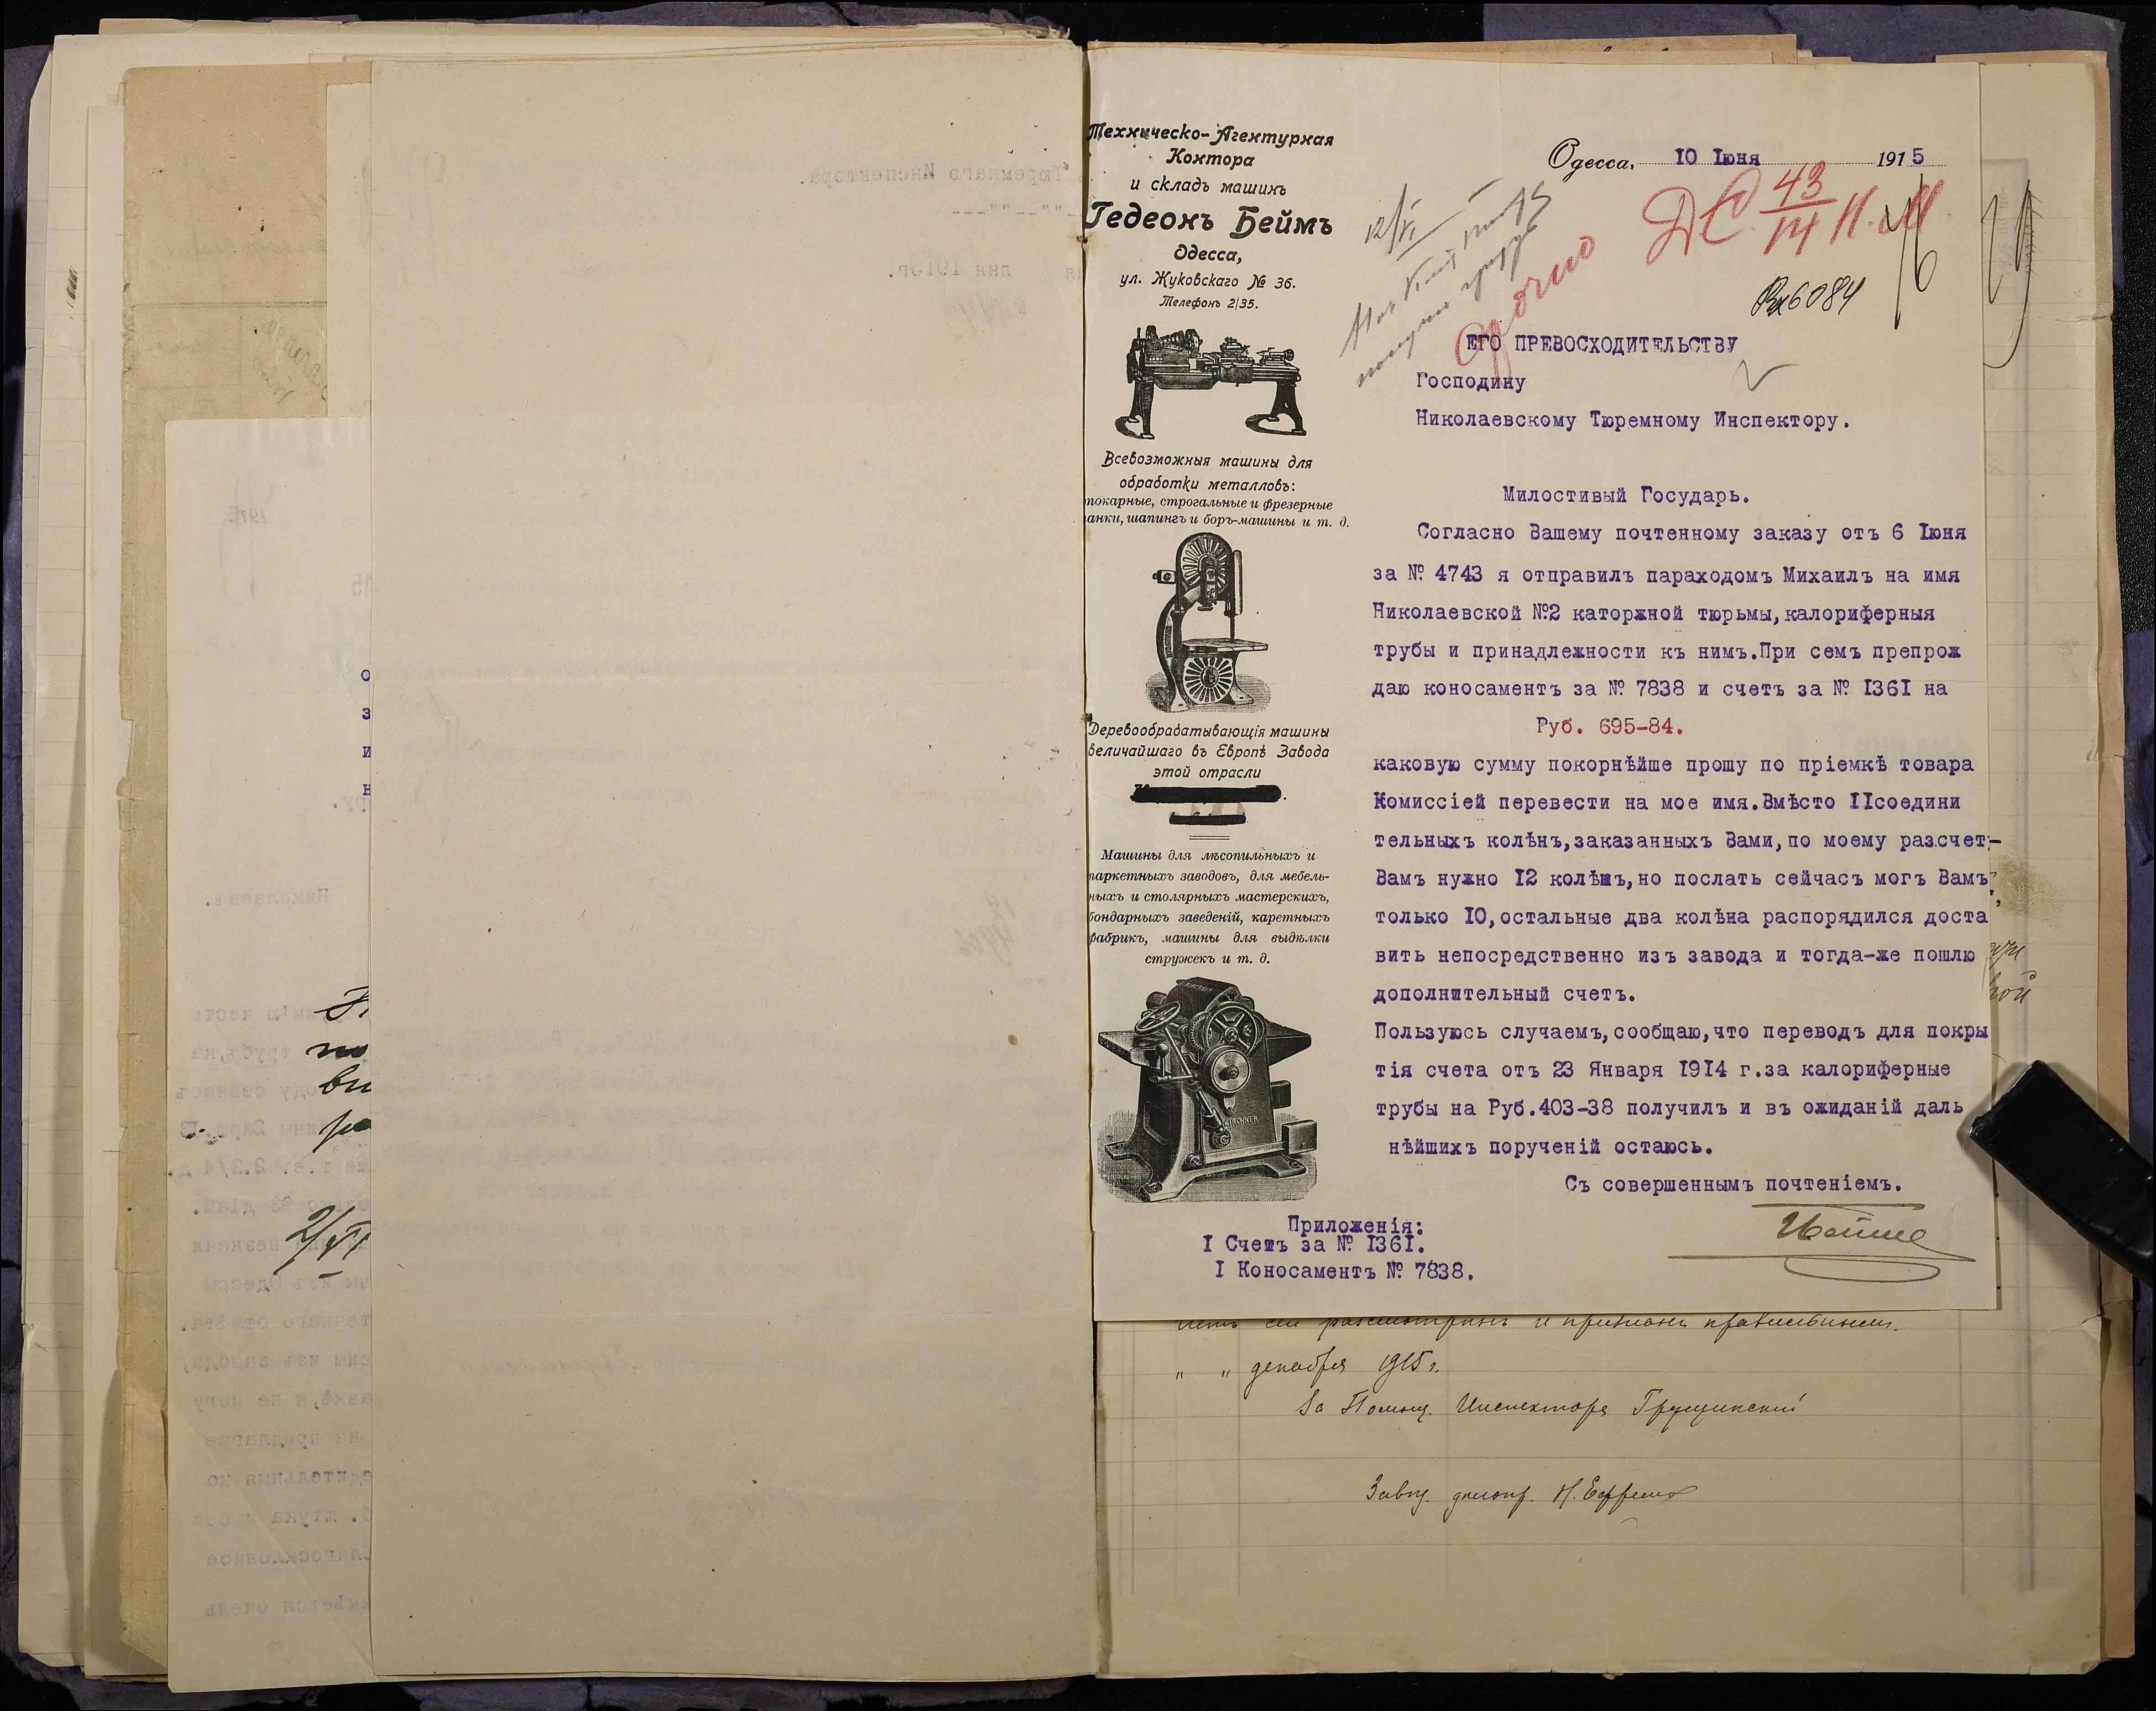 Техническо-Агентурная
Контора
и складъ машинъ
Гедеонъ Беймъ
Одесса,
ул. Жуковскаго № 36.
Телефонъ 2/35.
Всевозможныя машины для
обработки металловъ:
токарные, строгальные и фрезерные
анки, шапингъ и боръ-машины и т. д.
Деревообрабатывающія машины
величайшаго въ Европѣ Завода
этой отрасли
Машины для лѣсопильныхъ и
паркетныхъ заводовъ, для мебель-
ныхъ и столярныхъ мастерскихъ,
бондарныхъ заведеній, каретныхъ
фабрикъ, машины для выдѣлки
стружекъ и т. д.
KIRCHNER
Одесса, 10 Іюня 1915
12/VI
Срочно
43
14
Вх 6084
ЕГО ПРЕВОСХОДИТЕЛЬСТВУ
Господину
Николаевскому Тюремному Инспектору.
Милостивый Государь.
Согласно Вашему почтенному заказу отъ 6 Іюня
за № 4743 я отправилъ параходомъ Михаилъ на имя
Николаевской №2 каторжной тюрьмы,калориферныя
трубы и принадлежности къ нимъ.При семъ препрож
даю коносаментъ за № 7838 и счетъ за № I36I на
Руб. 695-84.
каковую сумму покорнѣйше прошу по пріемкѣ товара
Комиссіей перевести на мое имя.Вмѣсто IIсоедини
тельныхъ колѣнъ,заказанныхъ Вами,по моему разсчет-
Вамъ нужно I2 колѣнъ,но послать сейчасъ могъ Вамъ
только IO,остальные два колѣна распорядился доста
вить непосредственно изъ завода и тогда-же пошлю
дополнительный счетъ.
Пользуюсь случаемъ,сообщаю,что переводъ для покры
тія счета отъ 23 Января I9I4 г.за калориферные
трубы на Руб.403-38 получилъ и въ ожиданій даль
нѣйшихъ порученій остаюсь.
Съ совершеннымъ почтеніемъ.
Приложенія:
I Счетъ за № I36I.
I Коносаментъ № 7838.
сей разсмотрѣнъ и признанъ правильнымъ.
" " декабря 1915 г.
За Помощ. Инспектора Грущинскій
2/VI